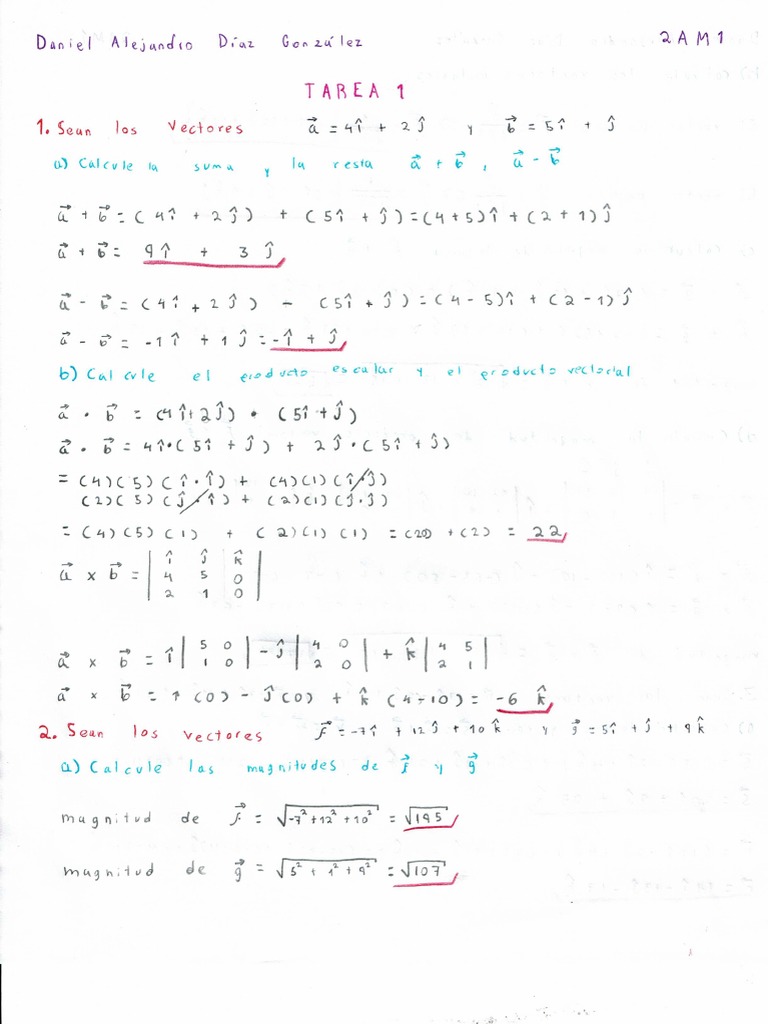 Daniel Alejandro Díaz González 2AM1
TAREA 1
1. Sean los vectores a⃗ = 4î + 2ĵ y b⃗ = 5î + ĵ
a) Calcule la suma y la resta a⃗ + b⃗ , a⃗ - b⃗
a⃗ + b⃗ = (4î + 2ĵ) + (5î + ĵ) = (4+5)î + (2+1)ĵ
a⃗ + b⃗ = 9î + 3ĵ
a⃗ - b⃗ = (4î + 2ĵ) - (5î + ĵ) = (4-5)î + (2-1)ĵ
a⃗ - b⃗ = -1î + 1ĵ = -î + ĵ
b) Calcule el producto escalar y el producto vectorial
a⃗ · b⃗ = (4î+2ĵ) · (5î+ĵ)
a⃗ · b⃗ = 4î·(5î + ĵ) + 2ĵ·(5î + ĵ)
= (4)(5)(î·î) + (4)(1)(î·ĵ)
(2)(5)(ĵ·î) + (2)(1)(ĵ·ĵ)
= (4)(5)(1) + (2)(1)(1) = (20) + (2) = 22
a⃗ x b⃗ = | î ĵ k̂ |
| 4 5 0 |
| 2 1 0 |
a⃗ x b⃗ = î | 5 0 | - ĵ | 4 0 | + k̂ | 4 5 |
| 1 0 | | 2 0 | | 2 1 |
a⃗ x b⃗ = ↑(0) - ĵ(0) + k̂(4-10) = -6 k̂
2. Sean los vectores f⃗ = -7î + 12ĵ + 10k̂ y g⃗ = 5î + ĵ + 9k̂
a) Calcule las magnitudes de f⃗ y g⃗
magnitud de f⃗ = √-7² + 12² + 10² = √195
magnitud de g⃗ = √5² + 1² + 9² = √107